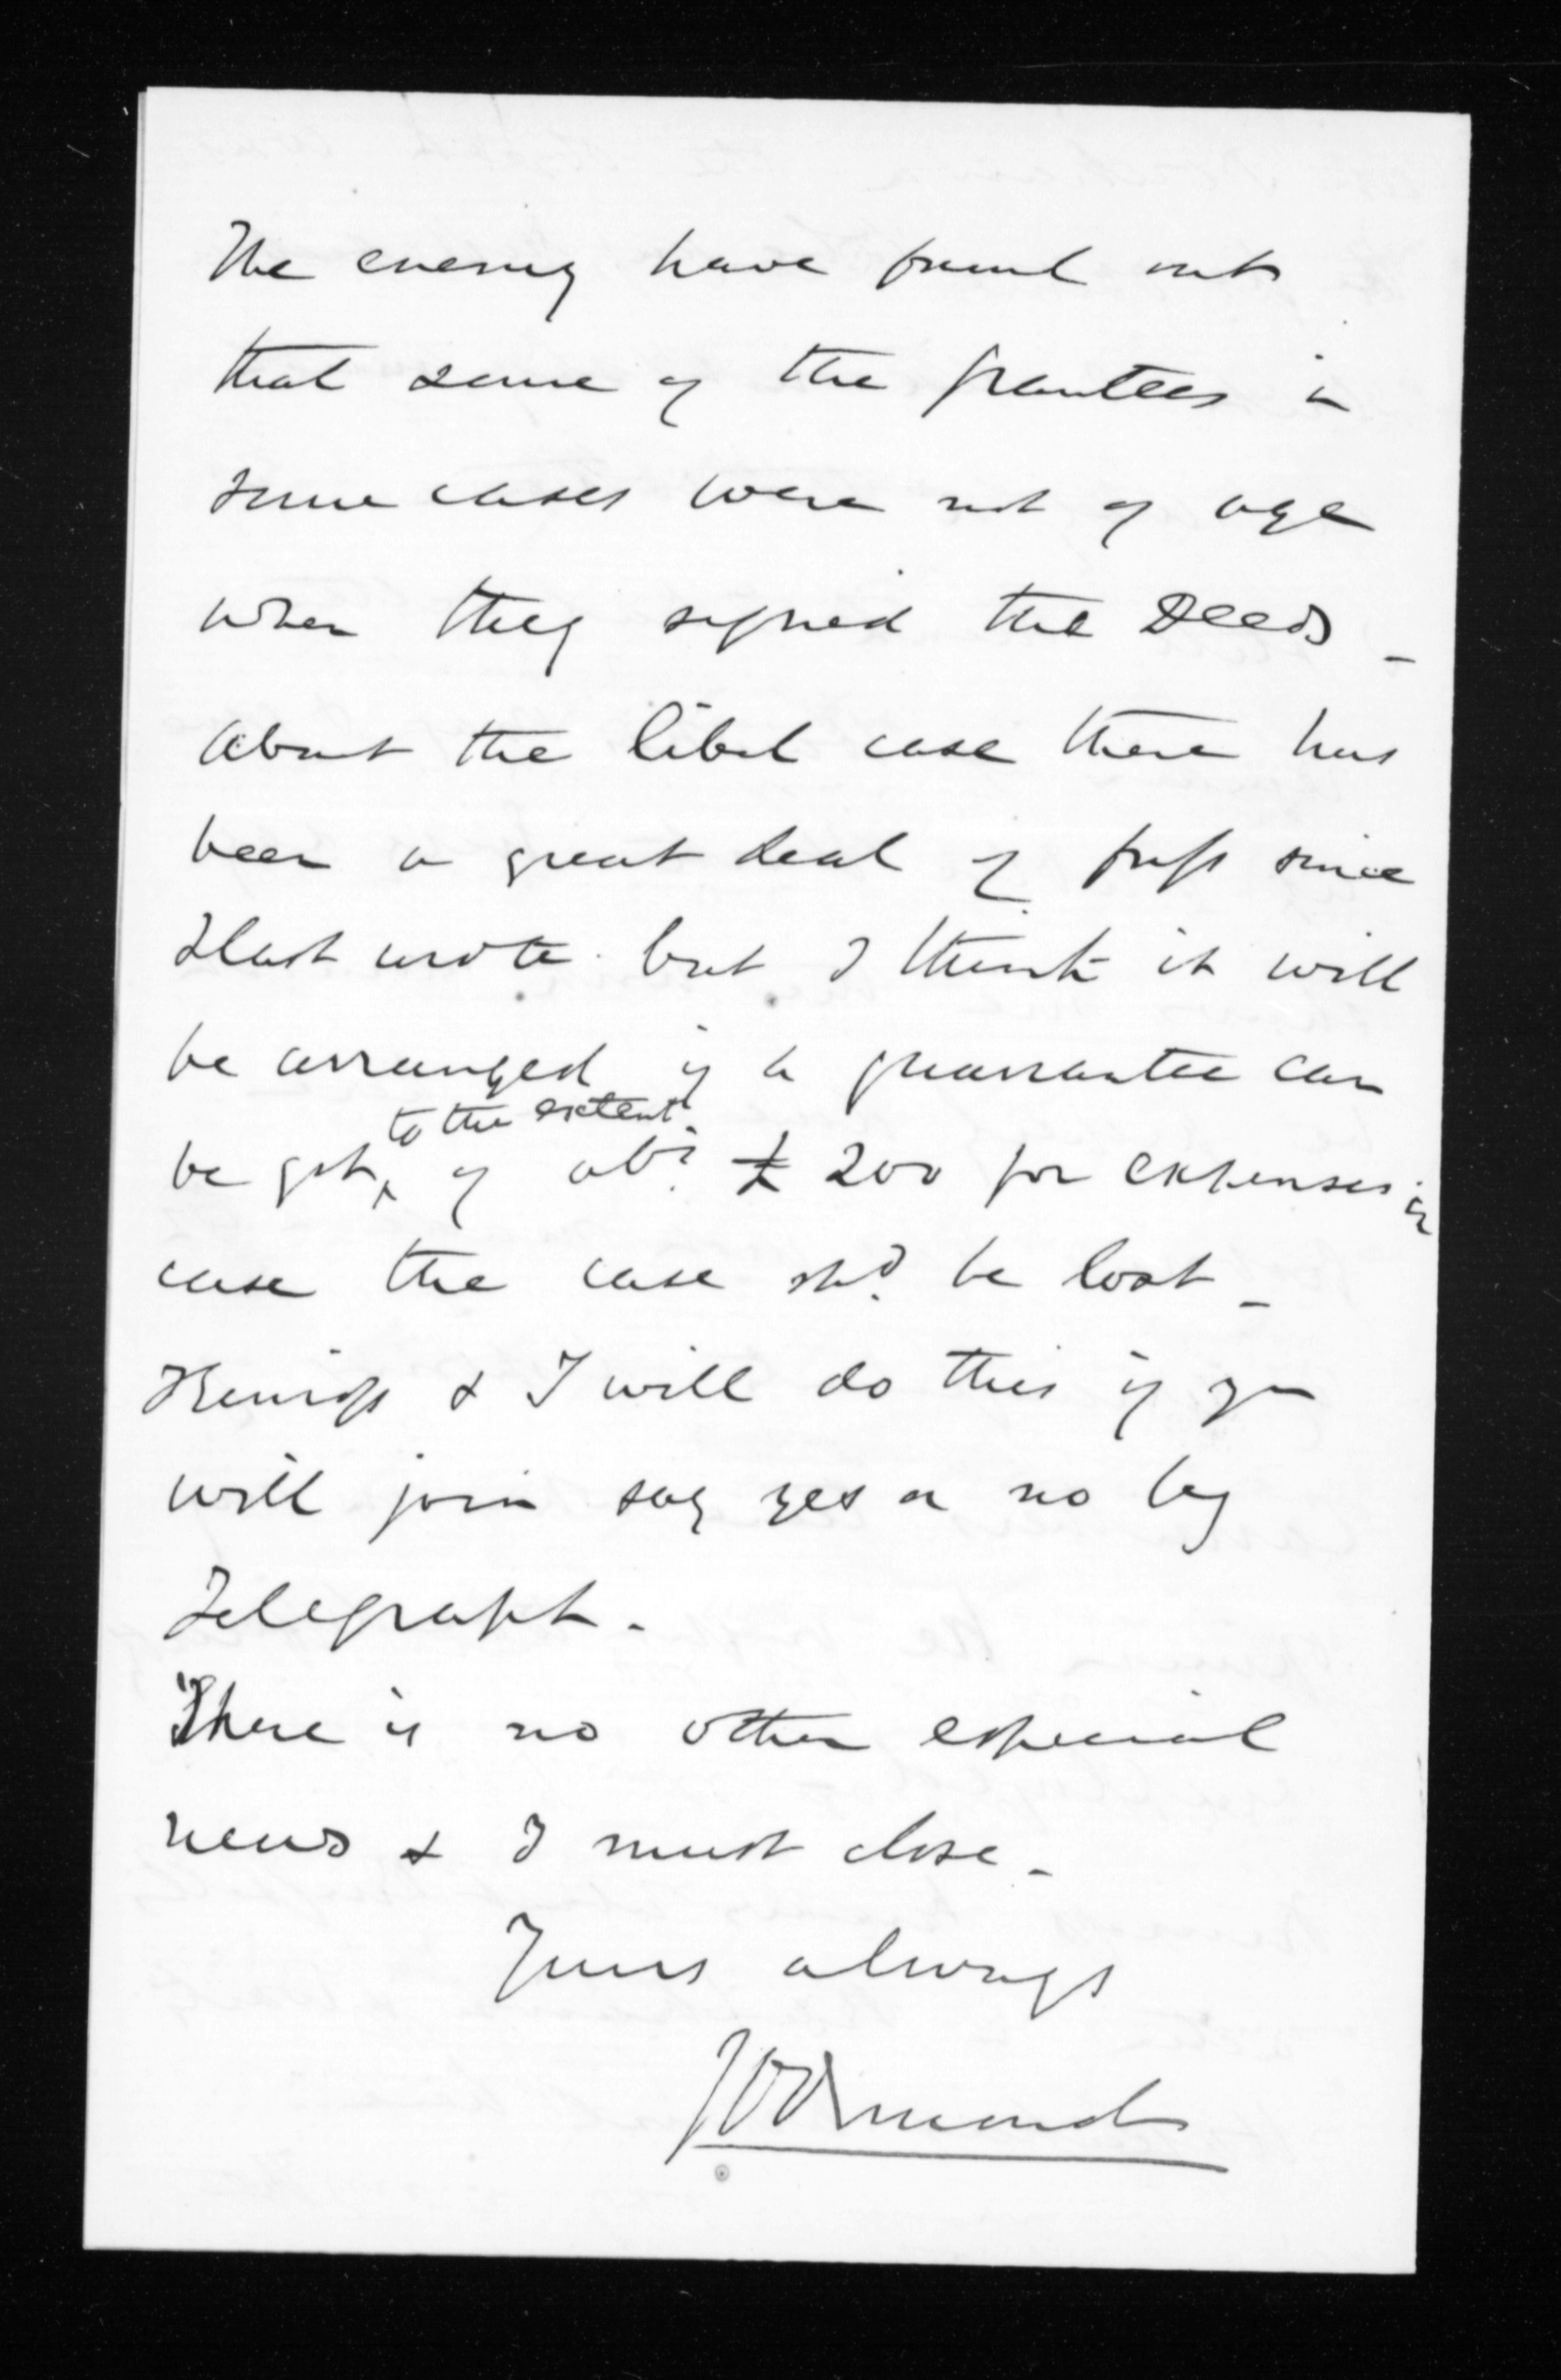 The enemy have found out
that some of the grantees in
some cases were not of age
when they signed the Deeds _
About the libel case there has
been a great deal of fuss since
I last wrote but I think it will
be arranged if a guarrantee can
to the extent
be got of abt £200 for expenses in
case the case shd be lost _
& I will do this if you
will join say yes or no by
Telegraph.
There is no other especial
news & I must close _
Yours always
JDOrmond